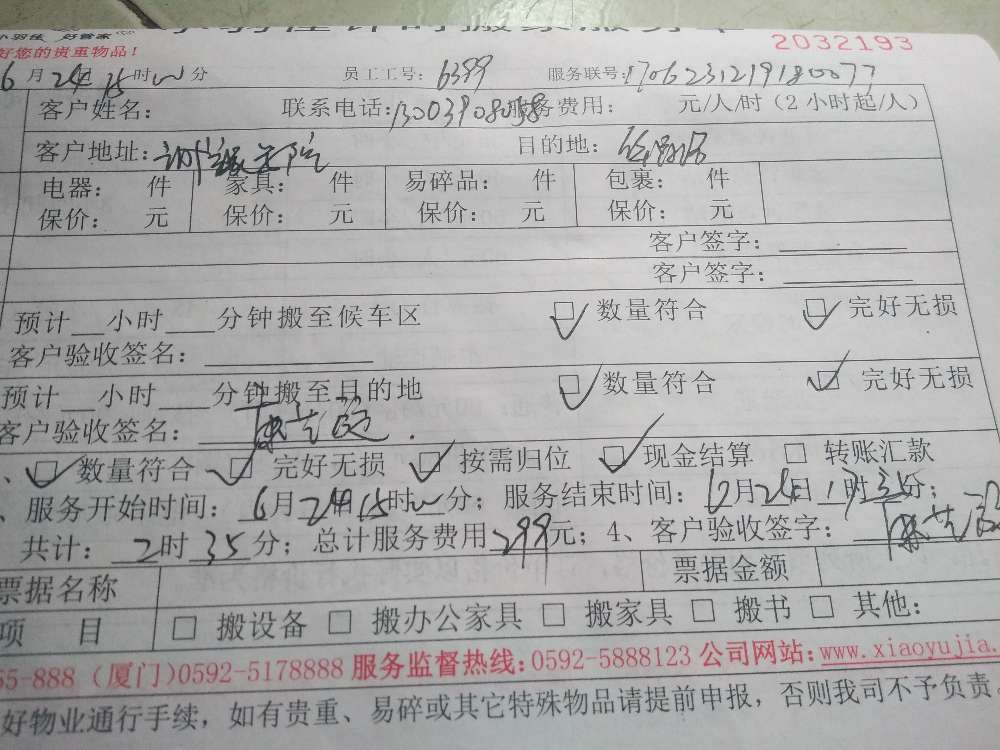 小羽佳 好管家
2032193
好您的贵重物品！
6月24日15时 分 员工工号：6399 服务联号：1706231219180077
客户姓名： 联系电话： 服务费用： 元/人/时（2小时起/人）
客户地址： 目的地：
电器： 件 家具： 件 易碎品： 件 包裹： 件
保价： 元 保价： 元 保价： 元 保价： 元
客户签字：
客户签字：
预计__小时___分钟搬至候车区 □ 数量符合 □ 完好无损
客户验收签名：
预计__小时___分钟搬至目的地 □ 数量符合 □ 完好无损
客户验收签名：
、□ 数量符合 □ 完好无损 □ 按需归位 □ 现金结算 □ 转账汇款
、服务开始时间：6月24日15时 分；服务结束时间：6月24日 时35分；
共计：2时35分；总计服务费用299元；4、客户验收签字：
票据名称 票据金额
项 目 □ 搬设备 □ 搬办公家具 □ 搬家具 □ 搬书 □ 其他：
55-888（厦门）0592-5178888 服务监督热线：0592-5888123 公司网站：www.xiaoyujia.
好物业通行手续，如有贵重、易碎或其它特殊物品请提前申报，否则我司不予负责。